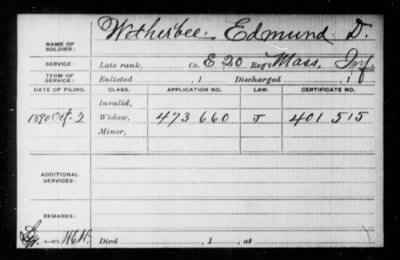 Wetherbee, Edmund D.
NAME OF SOLDIER:
SERVICE: Late rank, Co. E 20 Reg't Mass, Inf
TERM OF SERVICE: Enlisted , 1 Discharged , 1
DATE OF FILING. CLASS. APPLICATION NO. LAW. CERTIFICATE NO.
Invalid,
1890 Oct. 2 Widow, 473 660 J 401 515
Minor,
ADDITIONAL SERVICES:
REMARKS:
Died , 1 , at